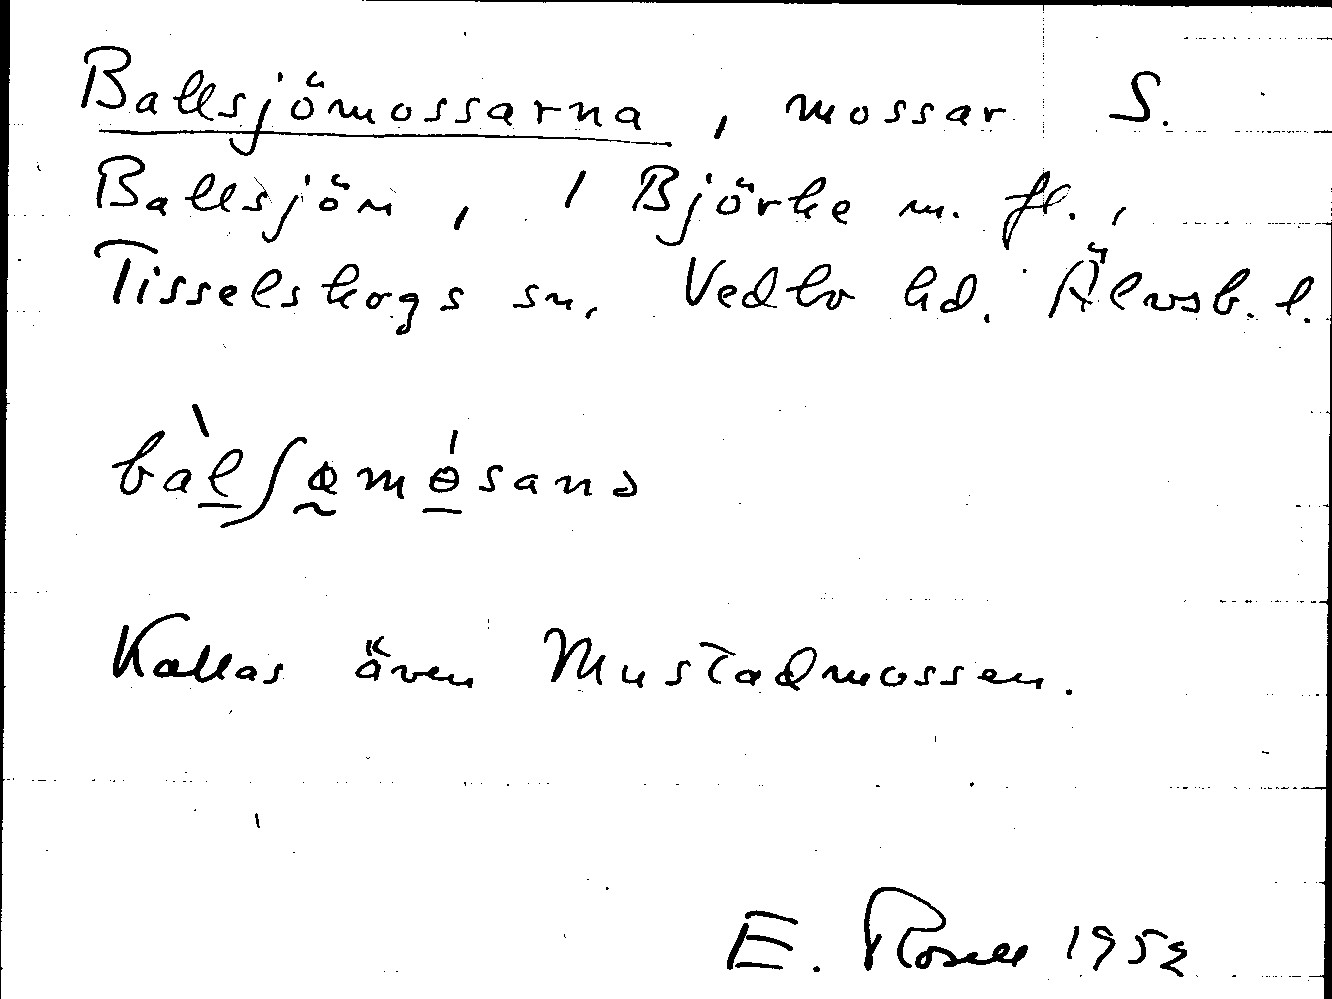 Ballsjömossarna, mossar S.
Ballsjön, 1 Björke m. fl.,
Tisselskogs sn. Vedbo hd. Älvsb. l.
Kallas även Mustadmossen.
E. Rosell 1952